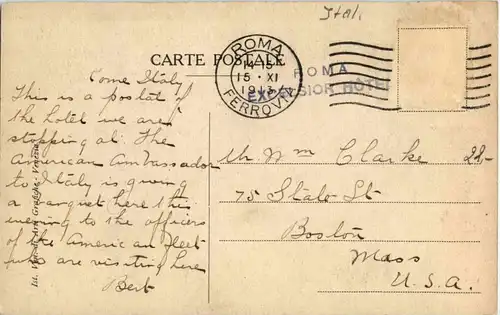 Ital.
CARTE POSTALE
ROMA
14-15
15 · XI
1913
FERROVIA
ROMA
EXCELSIOR HOTEL
Rome Italy
This is a postal of
the hotel we are
stopping at. The
American Ambassador
to Italy is giving
a banquet here this
evening to the officers
of the American fleet
who are visiting here
Bert
Mr Wm Clarke
75 State St
Boston
Mass
U.S.A.